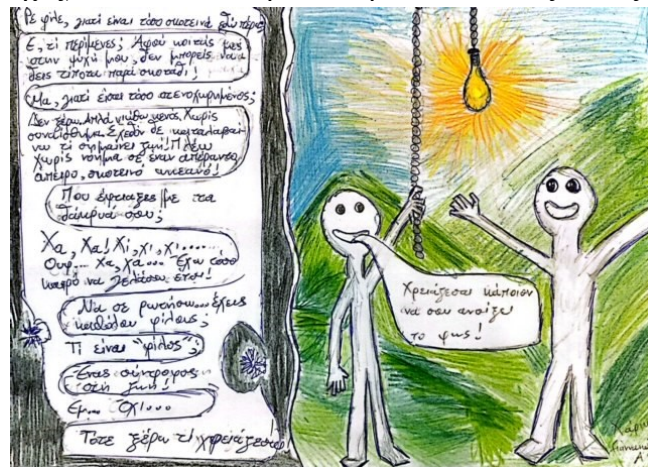 Ρε φίλε, γιατί είναι τόσο σκοτεινά εδώ πέρα;
Ε, τι περίμενες; Αφού κοιτάς μες
στην ψυχή μου, δεν μπορείς να
δεις τίποτα παρά σκοτάδι!
Μα, γιατί είσαι τόσο στενοχωρημένος;
Δεν ξέρω. Απλά νιώθω κενός. Χωρίς
συναίσθημα. Σχεδόν δε καταλαβαί-
νω τι σημαίνει ζωή! Πλέω
χωρίς νόημα σε έναν απέραντο,
άπειρο, σκοτεινό ωκεανό!
Που έφτιαξες με τα
δάκρυα σου;
Χα, Χα! Χι, χι, χι......
Ουφ... χα, χα... Έχω τόσο
καιρό να γελάσω έτσι!
Να σε ρωτήσω... έχεις
καθόλου φίλους;
Τι είναι "φίλος";
Ένας σύντροφος
στη ζωή!
Εμ... Όχι...
Τότε ξέρω τι χρειάζεσαι!
Χρειάζεσαι κάποιον
να σου ανοίξει
το φως!